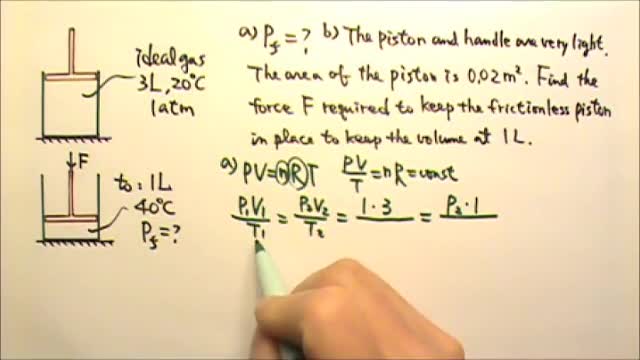 ideal gas
3L, 20°C
1 atm
F
to: 1L
40°C
P_f = ?
a) P_f = ? b) The piston and handle are very light.
The area of the piston is 0.02 m². Find the
force F required to keep the frictionless piston
in place to keep the volume at 1L.
a) PV = nRT PV/T = nR = const
P₁V₁/T₁ = P₂V₂/T₂ = 1·3/ = P₂·1/